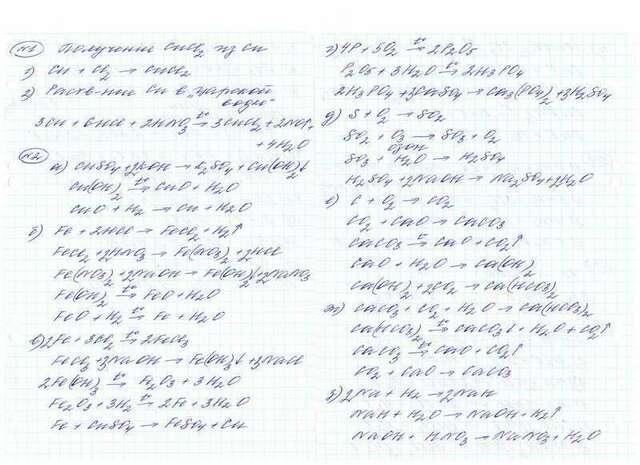 №1 Получение CuCl₂ из Cu
1) Cu + Cl₂ → CuCl₂
2) Раств-ние Cu в „царской
водке"
3Cu + 6HCl + 2HNO₃ →t° 3CuCl₂ + 2NO↑+
+ 4H₂O
№2. а) CuSO₄ + 2KOH → K₂SO₄ + Cu(OH)₂↓
Cu(OH)₂ →t° CuO + H₂O
CuO + H₂ → Cu + H₂O
б) Fe + 2HCl → FeCl₂ + H₂↑
FeCl₂ + 2HNO₃ → Fe(NO₃)₂ + 2HCl
Fe(NO₃)₂ + 2NaOH → Fe(OH)₂↓ + 2NaNO₃
Fe(OH)₂ →t° FeO + H₂O
FeO + H₂ →t° Fe + H₂O
в) 2Fe + 3Cl₂ →t° 2FeCl₃
FeCl₃ + 3NaOH → Fe(OH)₃↓ + 3NaCl
2Fe(OH)₃ →t° Fe₂O₃ + 3H₂O
Fe₂O₃ + 3H₂ →t° 2Fe + 3H₂O
Fe + CuSO₄ → FeSO₄ + Cu
г) 4P + 5O₂ →t° 2P₂O₅
P₂O₅ + 3H₂O →t° 2H₃PO₄
2H₃PO₄ + 3CaSO₄ → Ca₃(PO₄)₂ + 3H₂SO₄
д) S + O₂ → SO₂
SO₂ + O₃ → SO₃ + O₂
озон
SO₃ + H₂O → H₂SO₄
H₂SO₄ + 2NaOH → Na₂SO₄ + 2H₂O
е) C + O₂ → CO₂
CO₂ + CaO → CaCO₃
CaCO₃ →t° CaO + CO₂↑
CaO + H₂O → Ca(OH)₂
Ca(OH)₂ + 2CO₂ → Ca(HCO₃)₂
ж) CaCO₃ + CO₂ + H₂O → Ca(HCO₃)₂
Ca(HCO₃)₂ →t° CaCO₃↓ + H₂O + CO₂↑
CaCO₃ →t° CaO + CO₂↑
CO₂ + CaO → CaCO₃
з) 2Na + H₂ → 2NaH
NaH + H₂O → NaOH + H₂↑
NaOH + HNO₃ → NaNO₃ + H₂O